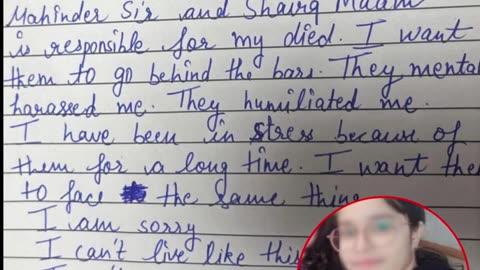 Mahinder Sir and Shairg Maam
is responsible for my died. I want
them to go behind the bars. They mental
harassed me. They humiliated me.
I have been in stress because of
them for a long time. I want the
to face the same thing
I am sorry
I can't live like this